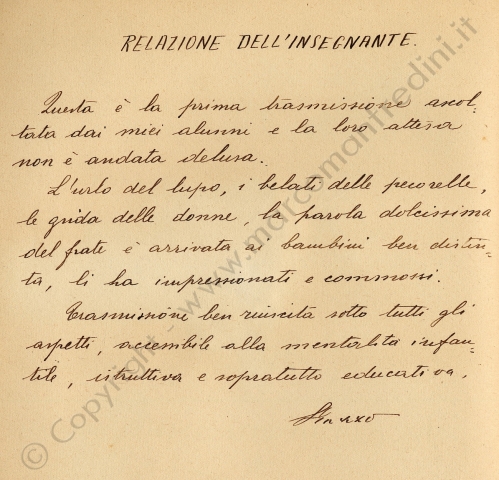 RELAZIONE DELL'INSEGNANTE.
Questa è la prima trasmissione ascol-
tata dai miei alunni e la loro attesa
non è andata delusa.
L'urlo del lupo, i belati delle pecorelle,
le grida delle donne, la parola dolcissima
del frate è arrivata ai bambini ben distin-
ta, li ha impressionati e commossi.
Trasmissione ben riuscita sotto tutti gli
aspetti, accessibile alla mentalità infan-
tile, istruttiva e sopratutto educativa.
© Copyright - www.marcomanfredini.it